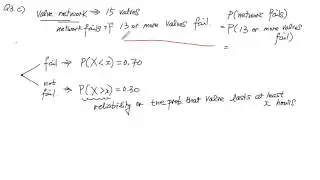 Q3.c) Valve network → 15 valves
network fails if 13 or more valves fail.
P(network fails)
= P(13 or more valves fail)
=
fail → P(X<x) = 0.70
not fail → P(X>x) = 0.30
reliability or the prob. that valve lasts at least
x hours